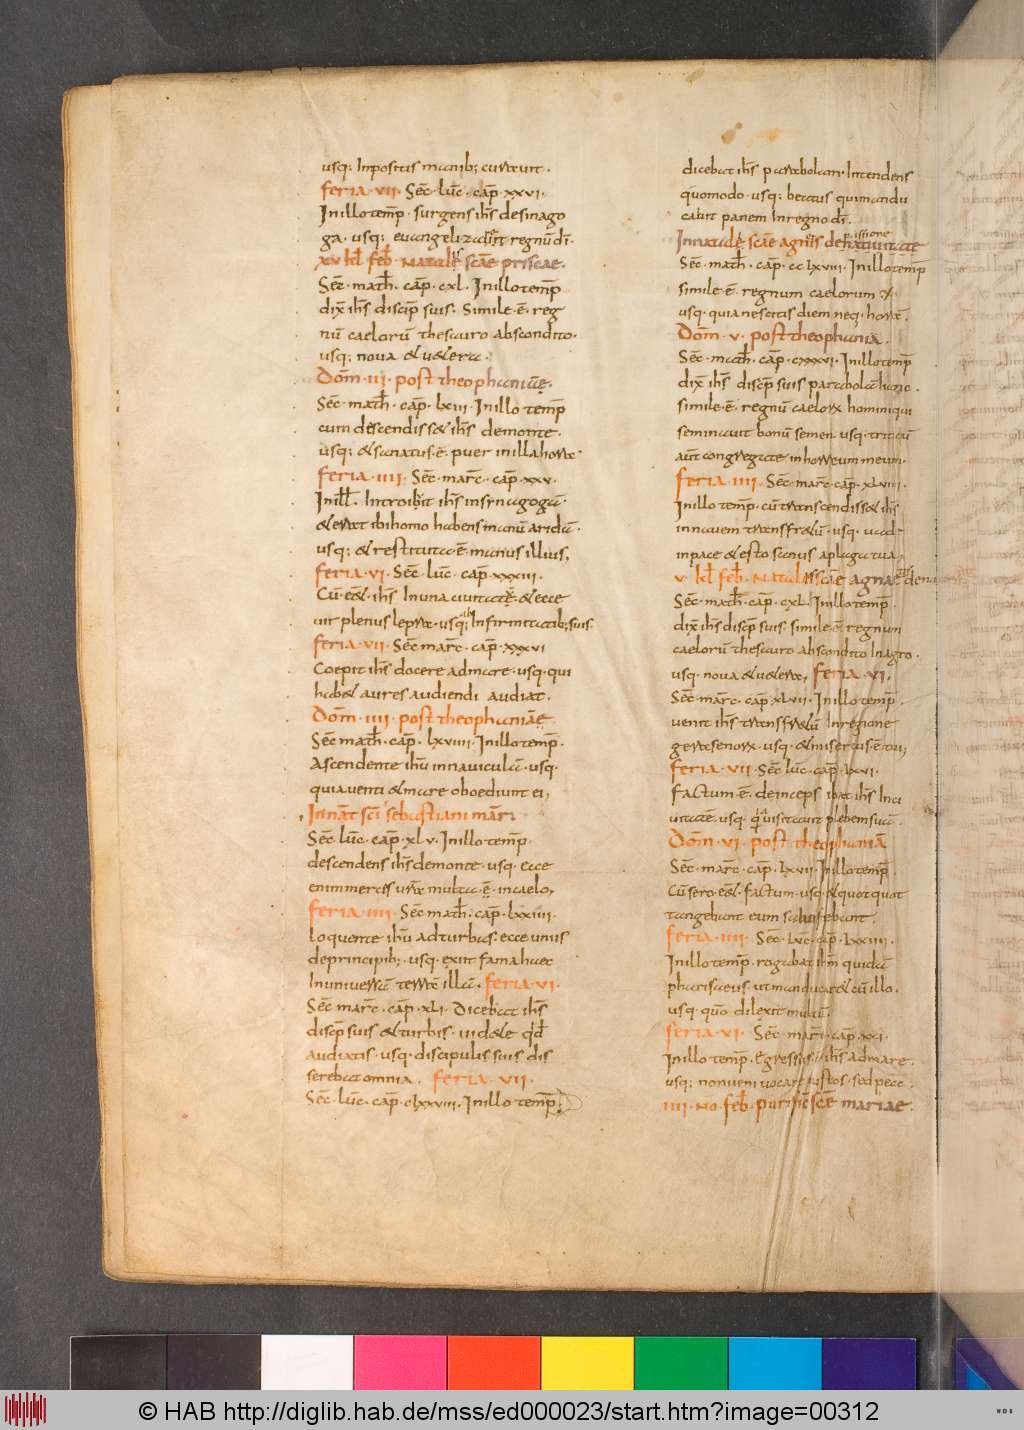 usq; Inpositis manib; curauit.
feria · VII · Sēc · luc̄ · cap̄ · xxvi ·
In illo temp̄ · surgens ihs̄ desinago
ga · usq; euangelizare regnū dī ·
xv kl feb̄ · Natale scāe priscae ·
Sēc · math̄ · cap̄ · cxl · In illo temp̄
dix̄ ihs̄ discip̄ suis · Simile · ē · reg
nū caelorū thesauro abscondito ·
usq; noua & uetera ·
Dom̄ · III · post theophaniāę ·
Sēc · math̄ · cap̄ · lxiii · In illo temp̄
cum descendiss& ihs̄ demonte ·
usq; & sanatus · ē · puer in illa hora ·
feria · IIII · Sēc · marc̄ · cap̄ · xxv ·
In ill̄ · Introibit ihs̄ in synagogā ·
& erat ibi homo habens manū aridā ·
usq; & restituta · ē · manus illius;
feria · VI · Sēc · luc̄ · cap̄ · xxxiii ·
Cū · ēēt · ihs̄ In una ciuitatē · & ecce
uir plenus lepra · usq; Infirmitatib; suis ·
feria · VII · Sēc marc̄ · cap̄ · xxxvi
Coepit ihs̄ docere ad mare · usq · qui
hab& aures audiendi audiat ·
Dom̄ · IIII · post theophaniāe ·
Sēc math̄ · cap̄ · lxviiii · In illo temp̄ ·
Ascendente ihū in nauiculā · usq ·
quia uenti & mare oboediunt ei;
In nat̄ scī sebastiani mar̄ ·
Sēc · luc̄ · cap̄ · xlv · In illo temp̄ ·
descendens ihs̄ demonte · usq · ecce
enim merces ura multa · ē · in caelo;
feria · IIII · Sēc math̄ · cap̄ · lxxiiii ·
loquente ihū ad turbas · ecce unus
de principib; · usq · exiit fama haec
In uniuersā terrā illā · feria · VI ·
Sēc · marc̄ · cap̄ · xli · Dicebat ihs̄
discip̄ suis & turbis · uid&e qd̄
audiatis · usq · discipulis suis dis
serebat omnia · feria · VII ·
Sēc · luc̄ · cap̄ · clxxviii · In illo temp̄ ·
dicebat ihs̄ parabolam · Intendens
quomodo · usq; beatus qui mandu
cabit panem In regno dī ·
In natale scāe agnis de natiuitate
passione
Sēc · math̄ · cap̄ · cclxviii · In illo temp̄
simile · ē · regnum caelorum · x ·
usq · quia nescitis diem neq; horā ·
Dom̄ · V · post theophania ·
Sēc · math̄ · cap̄ · cxxxvi · In illo temp̄
dix̄ ihs̄ discip̄ suis parabolā hanc ·
simile · ē · regnū caelorx homini qui
seminauit bonū semen · usq · triticū
aut̄ congregate in horreum meum ·
feria · IIII · Sēc · marc̄ · cap̄ · xlviii ·
In illo temp̄ · cū transcendiss& ihs̄
in nauem transfretū · usq · uade
in pace & esto sanus a plaga tua;
V · kl feb̄ · Natale scāe agnae de na
Sēc · math̄ · cap̄ · cxl · In illo temp̄ ·
dix̄ ihs̄ discip̄ suis · simile · ē · regnum
caelorū thesauro abscondito In agro ·
usq · noua & uetera; feria · VI ·
Sēc · marc̄ · cap̄ · xlvii · In illo temp̄ ·
uenit ihs̄ transfretū In regione
gerasenorx · usq · & misertus · ē · tui;
feria · VII · Sēc · luc̄ · cap̄ · lxvi ·
Factum · ē · deinceps ibat ihs̄ In ci
uitatē · usq · quia uisitauit plebem suā ·
Dom̄ · VI · post theophaniā
Sēc · marc̄ · cap̄ · lxvii · In illo temp̄ ·
Cū sero · ēēt · factum · usq · & quotquot
tangebant eum salui fiebant ·
feria · IIII · Sēc · luc̄ · cap̄ · lxxiiii ·
In illo temp̄ · rogabat ihm̄ quidā
pharisaeus ut manducar& cū illo ·
usq · quo dilexit multū ·
feria · VI · Sēc · marc̄ · cap̄ · xxi ·
In illo temp̄ · Egressus · ihs̄ ad mare ·
usq; non ueni uocare iustos · sed pecc̄ ·
IIII · No · feb̄ · purific̄ scāe mariae ·
© HAB http://diglib.hab.de/mss/ed000023/start.htm?image=00312